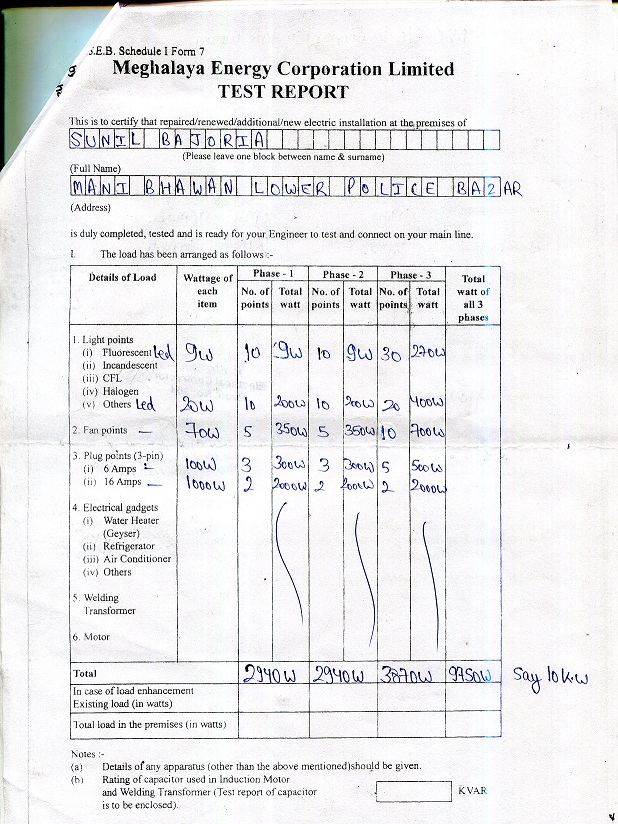 S.E.B. Schedule I Form 7
Meghalaya Energy Corporation Limited
TEST REPORT
This is to certify that repaired/renewed/additional/new electric installation at the premises of
SUNIL BAJORIA
(Please leave one block between name & surname)
(Full Name)
MANI BHAWAN LOWER POLICE BAZAR
(Address)
is duly completed, tested and is ready for your Engineer to test and connect on your main line.
I. The load has been arranged as follows :-
Details of Load Wattage of each item Phase - 1 Phase - 2 Phase - 3 Total watt of all 3 phases
No. of points Total watt No. of points Total watt No. of points Total watt
1. Light points
(i) Fluorescent Led 9W 10 9W 10 9W 30 270W
(ii) Incandescent
(iii) CFL
(iv) Halogen
(v) Others Led 20W 10 200W 10 200W 20 400W
2. Fan points — 70W 5 350W 5 350W 10 700W
3. Plug points (3-pin)
(i) 6 Amps — 100W 3 300W 3 300W 5 500W
(ii) 16 Amps — 1000W 2 2000W 2 2000W 2 2000W
4. Electrical gadgets
(i) Water Heater
(Geyser)
(ii) Refrigerator
(iii) Air Conditioner
(iv) Others
5. Welding
Transformer
6. Motor
Total 2940W 2940W 3870W 9750W Say 10 K.W
In case of load enhancement
Existing load (in watts)
Total load in the premises (in watts)
Notes :-
(a) Details of any apparatus (other than the above mentioned)should be given.
(b) Rating of capacitor used in Induction Motor
and Welding Transformer (Test report of capacitor KVAR
is to be enclosed)..